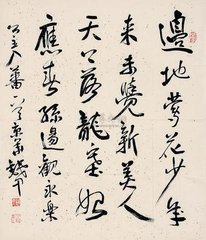 邊地鶯花少年
來未覺新美人
天上落龍塞始
應春孫逖觀永樂
公主人蕃